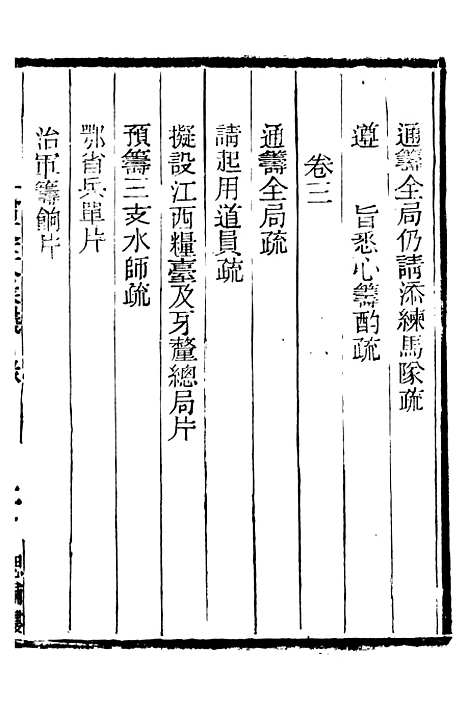 通籌全局仍請添練馬隊疏
遵 旨悉心籌酌疏
卷三
通籌全局疏
請起用道員疏
擬設江西糧臺及牙釐總局片
預籌三支水師疏
鄂省兵單片
治軍籌餉片
思補樓